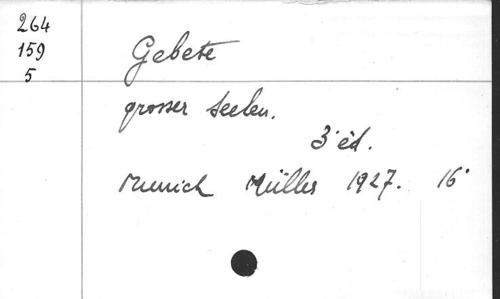 264
159
5
Gebete
grosser Seelen.
3'éd.
Munich Müller 1927. 16°